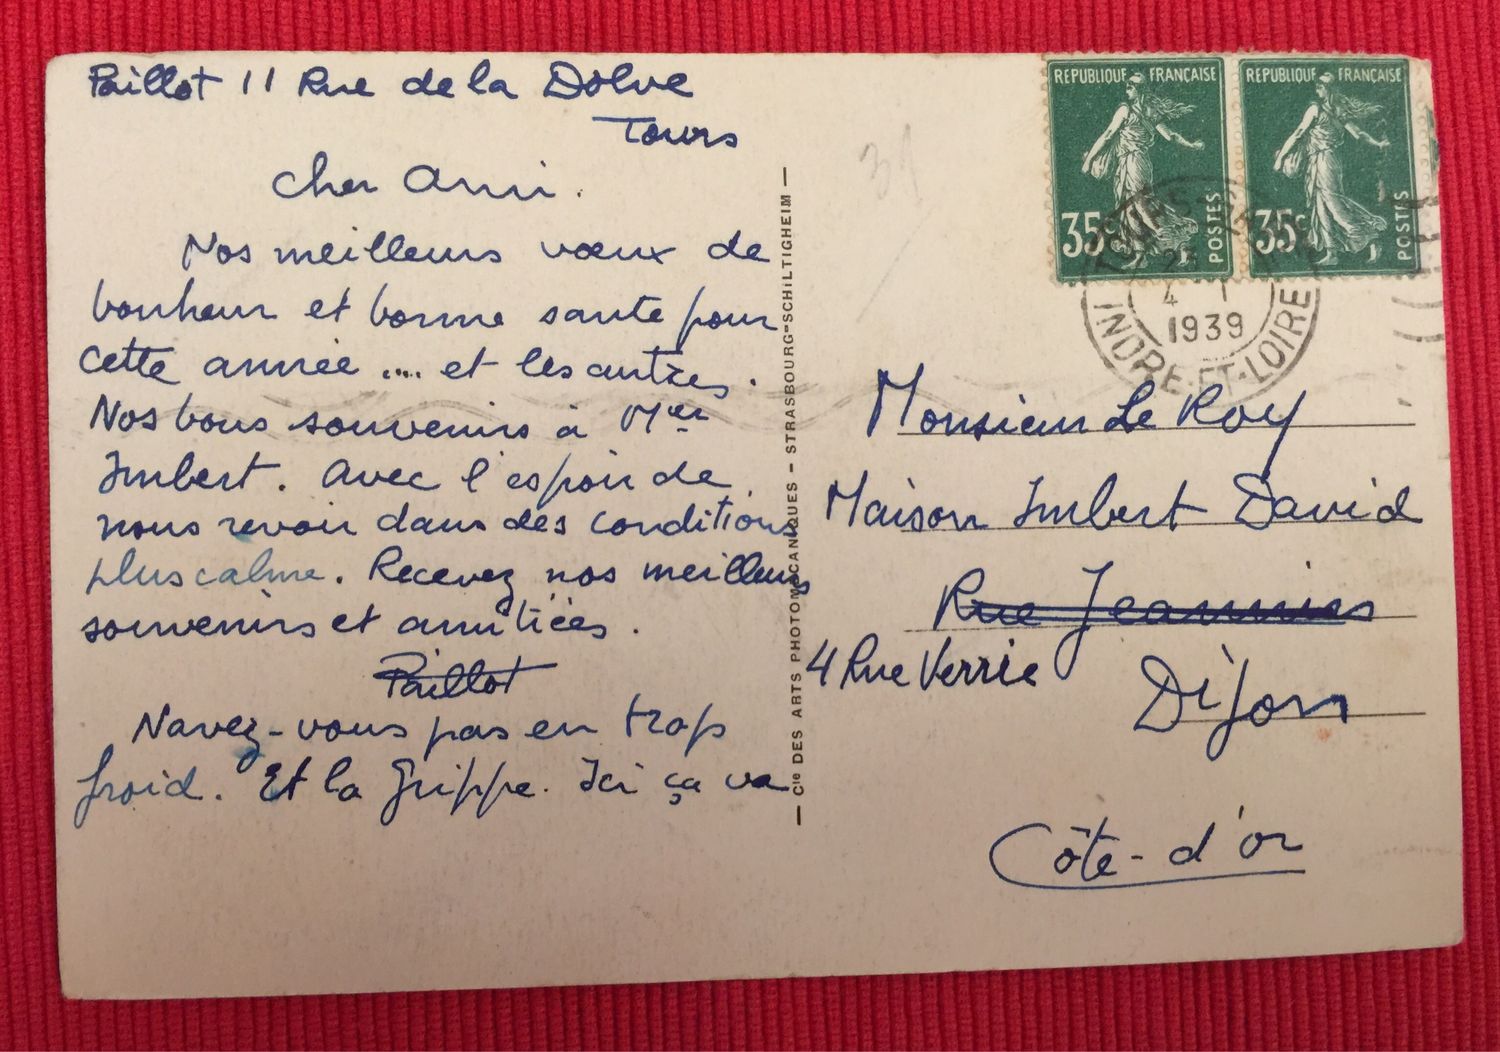 Paillot 11 Rue de la Dolve
Tours
Cher Ami.
Nos meilleurs vœux de
bonheur et bonne sante pour
cette année .... et les autres.
Nos bons souvenirs à Mer
Imbert. Avec l'espoir de
nous revoir dans des conditions
plus calme. Recevez nos meilleurs
souvenirs et amitiées.
Paillot
Navez-vous pas en trop
froid. Et la Grippe. Ici ça va
— Cie DES ARTS PHOTOMÉCANIQUES - STRASBOURG-SCHILTIGHEIM —
31
REPUBLIQUE FRANÇAISE
35c
POSTES
REPUBLIQUE FRANÇAISE
35c
POSTES
TOURS-
4 - 1
1939
INDRE-ET-LOIRE
Monsieur Le Roy
Maison Imbert David
Rue Jeannin
4 Rue Verrie
Dijon
Côte-d'or